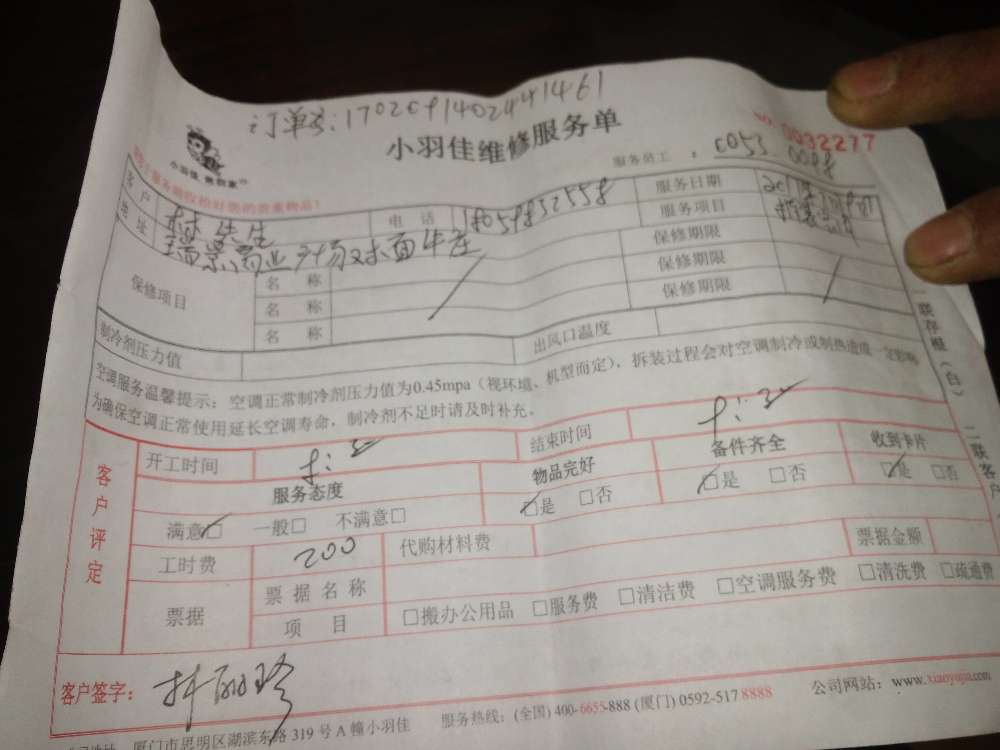 订单号:17020914024441461
小羽佳维修服务单
NO. 0032277
小羽佳,佣到家
服务员工: 0053.0098
客户 林先生 电话 服务日期
地址 瑞景商业广场 服务项目
保修项目 名称 保修期限
名称 保修期限
名称 保修期限
制冷剂压力值 出风口温度
空调服务温馨提示:空调正常制冷剂压力值为0.45mpa(视环境、机型而定),拆装过程会对空调制冷或制热造成一定影响
为确保空调正常使用延长空调寿命,制冷剂不足时请及时补充。
一联存根(白) 二联客户
客户评定
开工时间 结束时间
服务态度 物品完好 备件齐全 收到卡片
满意□ 一般□ 不满意□ □是 □否 □是 □否 □是 □否
工时费 200 代购材料费 票据金额
票据 票据名称
项目 □搬办公用品 □服务费 □清洁费 □空调服务费 □清洗费 □疏通费
客户签字:
厦门市思明区湖滨东路319号A幢小羽佳 服务热线:(全国)400-6655-888(厦门)0592-5178888 公司网站:www.xiaoyujia.com